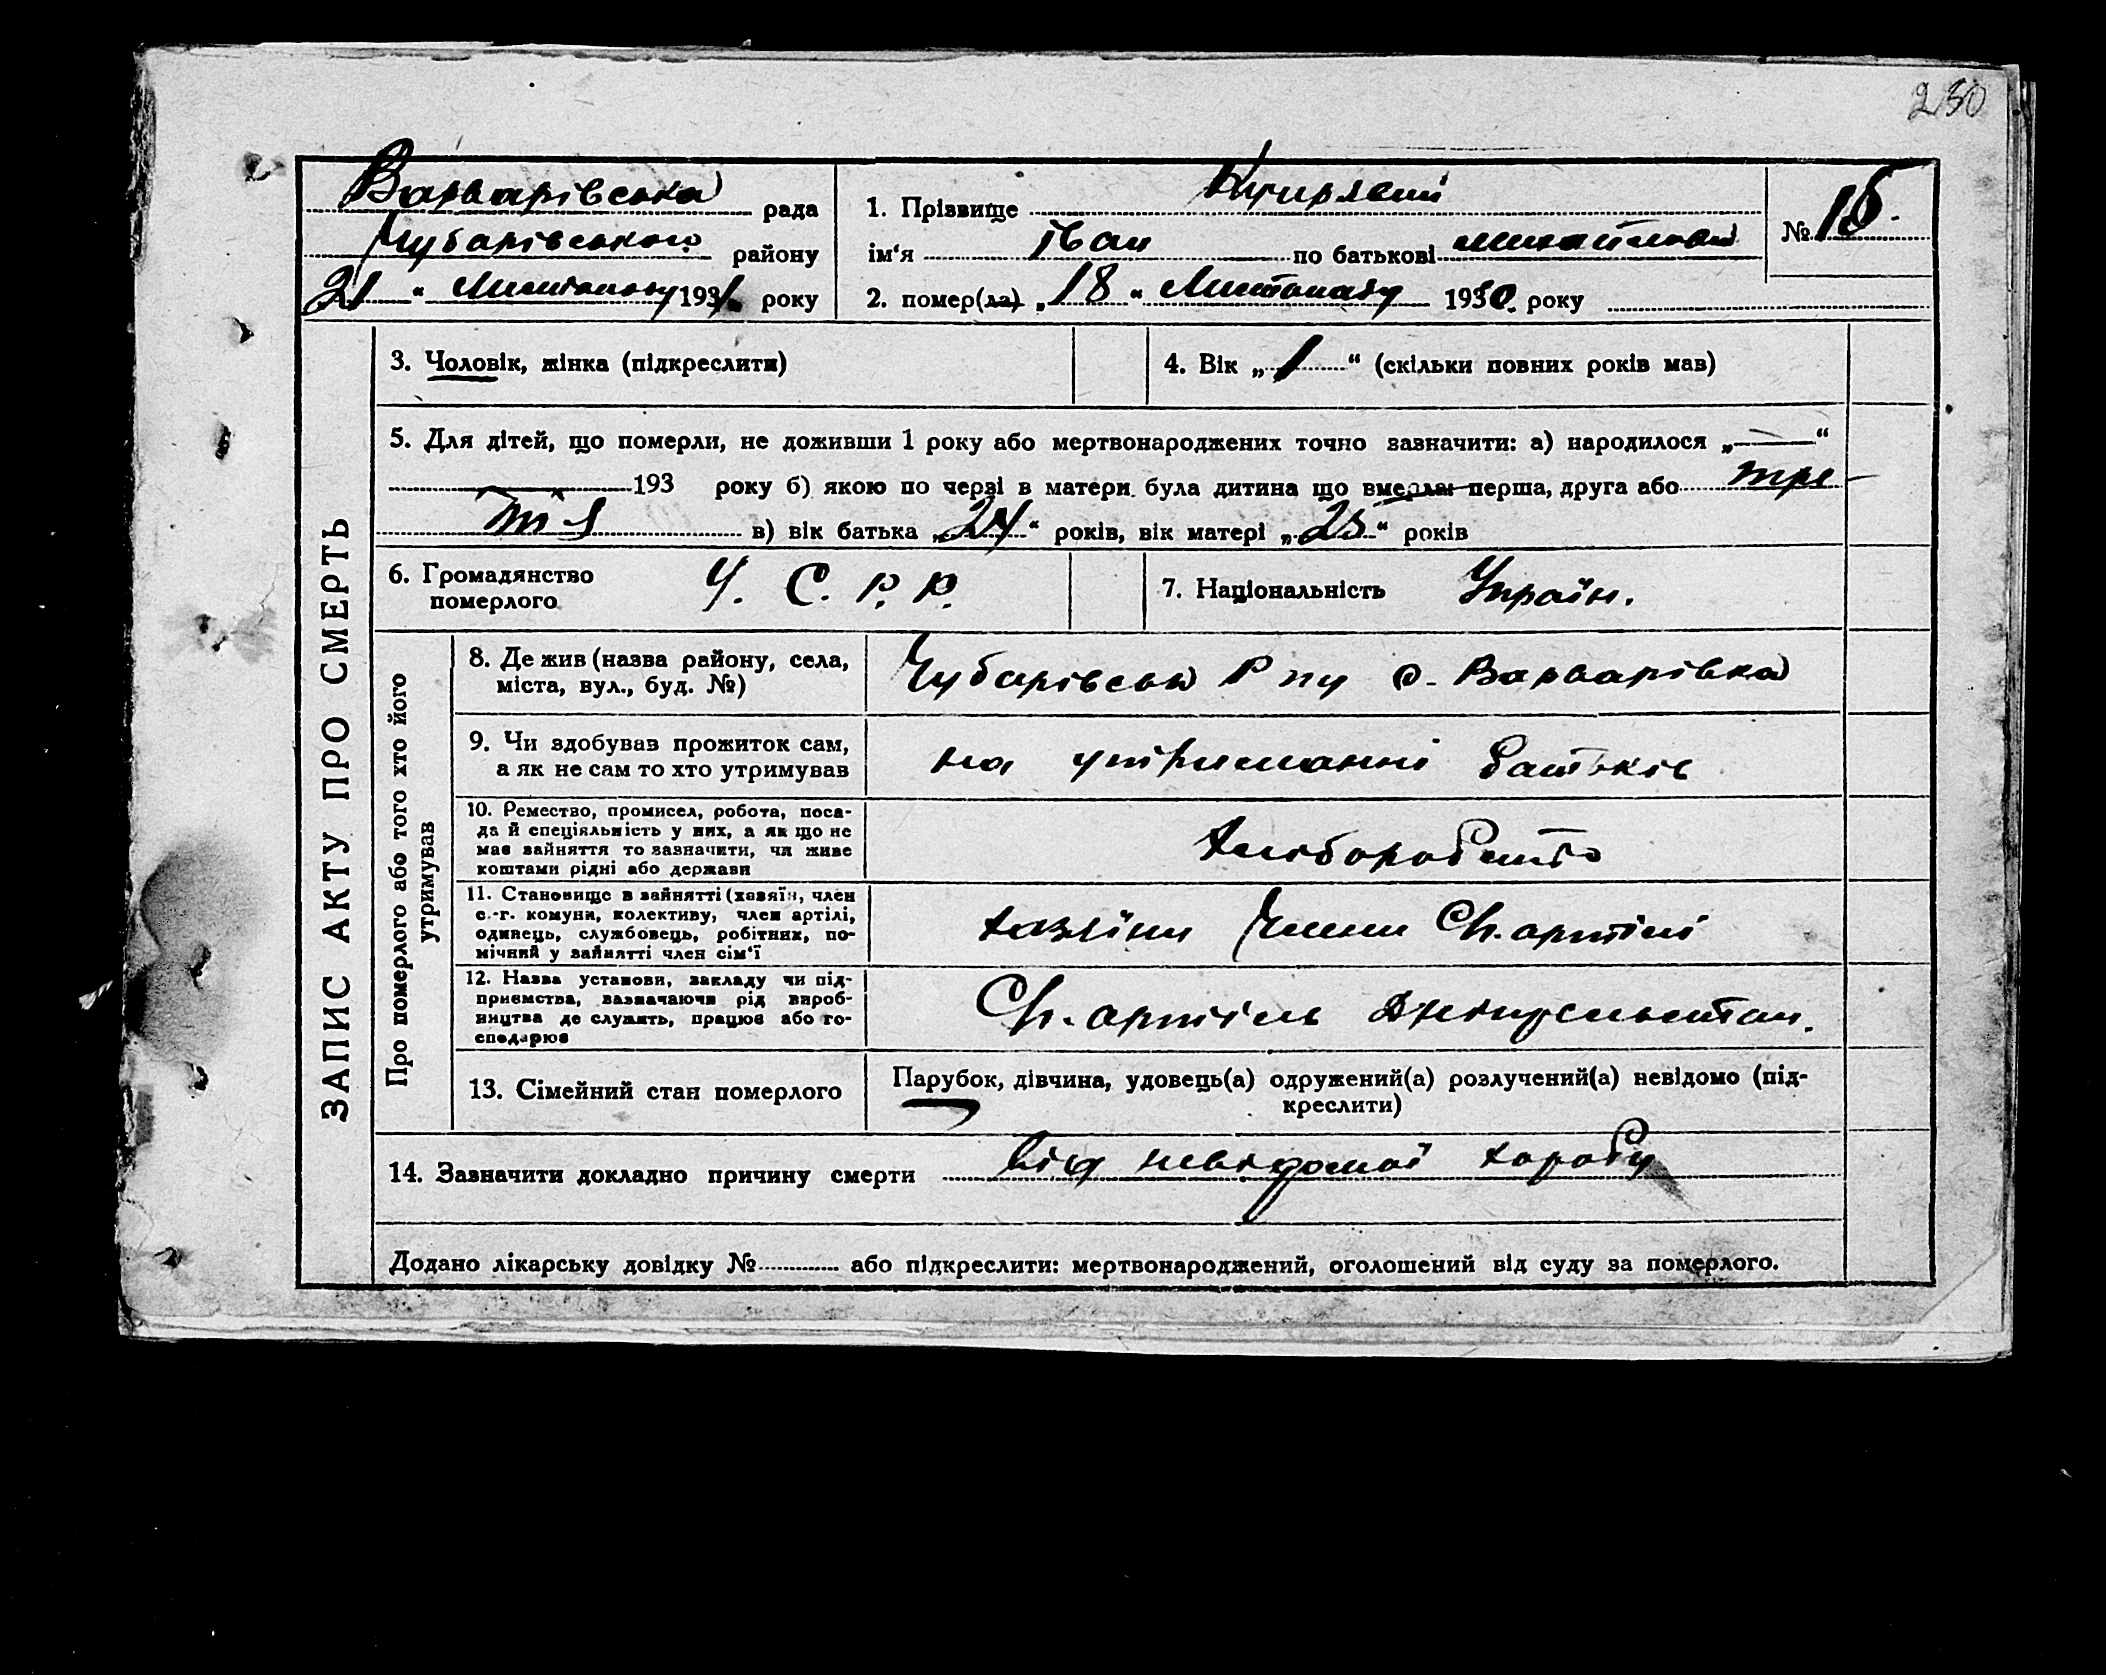 230
Варварівська рада
Чубарівського району
21 " Листопаду 1931. року
1. Прізвище Кучирявий
ім'я Іван по батькові Михайлови
2. помер(ла) „ 18 " Листопаду 1930. року
№ 15.
ЗАПИС АКТУ ПРО СМЕРТЬ
3. Чоловік, жінка (підкреслити)
4. Вік „ 1 “ (скільки повних років мав)
5. Для дітей, що померли, не доживши 1 року або мертвонароджених точно зазначити: а) народилося „ — “
193 року б) якою по черзі в матери була дитина що вмерла: перша, друга або тре-
тія в) вік батька „ 24 “ років, вік матері „ 25 “ років
6. Громадянство
померлого
У. С. Р. Р.
7. Національність Україн.
Про померлого або того хто його
утримував
8. Де жив (назва району, села,
міста, вул., буд. №)
Чубарівськ Р ну с. Варварівка
9. Чи здобував прожиток сам,
а як не сам то хто утримував
на утриманні батьків
10. Ремество, промисел, робота, поса-
да й спеціяльність у них, а як що не
має вайняття то зазначити, чи живе
коштами рідні або держави
Хліборобство
11. Становище в зайнятті (хазяїн, член
с.-г. комуни, колективу, член артілі,
одинець, службовець, робітник, по-
мічний у зайнятті член сім'ї
хазяїни Члени Сг. артілі
12. Назва установи, закладу чи під-
приємства, зазначаючи рід вироб-
ництва де служить, працює або го-
сподарює
Сг. артіль Дніпрельстан.
13. Сімейний стан померлого
Парубок, дівчина, удовець(а) одружений(а) розлучений(а) невідомо (під-
креслити)
14. Зазначити докладно причину смерти від невідомої хороби
Додано лікарську довідку № або підкреслити: мертвонароджений, оголошений від суду за померлого.